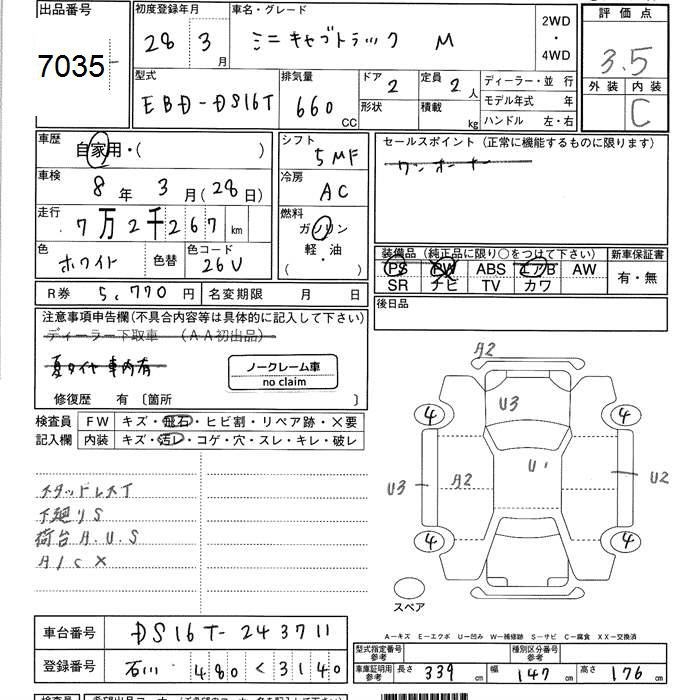 出品番号
7035
初度登録年月
28 3 月
車名・グレード
ミニキャブトラック M
2WD
・
4WD
評価点
3.5
外装 内装
C
型式
EBD-DS16T
排気量
660 CC
ドア 2
形状
定員 2 人
積載 kg
ディーラー・並 行
モデル年式 年
ハンドル 左・右
車歴
自家用・( )
シフト
5MF
セールスポイント (正常に機能するものに限ります)
ワンオーナー
車検
8 年 3 月 (28 日)
冷房
AC
走行
7万2千267 km
燃料
ガソリン
軽・油
( ・ )
色
ホワイト
色替
色コード
26U
装備品 (純正品に限り○をつけて下さい)
PS PW ABS エアB AW
SR ナビ TV カワ
新車保証書
有・無
R券 5,770 円
名変期限 月 日
後日品
注意事項申告欄(不具合内容等は具体的に記入して下さい)
ディーラー下取車 (AA初出品)
夏タイヤ車内有
ノークレーム車
no claim
修復歴 有 〔箇所 〕
検査員
記入欄
FW キズ・飛石・ヒビ割・リペア跡・×要
内装 キズ・汚レ・コゲ・穴・スレ・キレ・破レ
スタッドレスT
下廻りS
荷台A.U.S
A/C×
A2
U3
4
4
U3
A2
U'
U2
4
4
スペア
車台番号
DS16T-243711
登録番号
石川 480 く 3140
A−キズ E−エクボ U−凹み W−補修跡 S−サビ C−腐食 XX−交換済
型式指定番号
参考
種別区分番号
参考
車庫証明用
参考
長さ 339 cm 幅 147 cm 高さ 176 cm